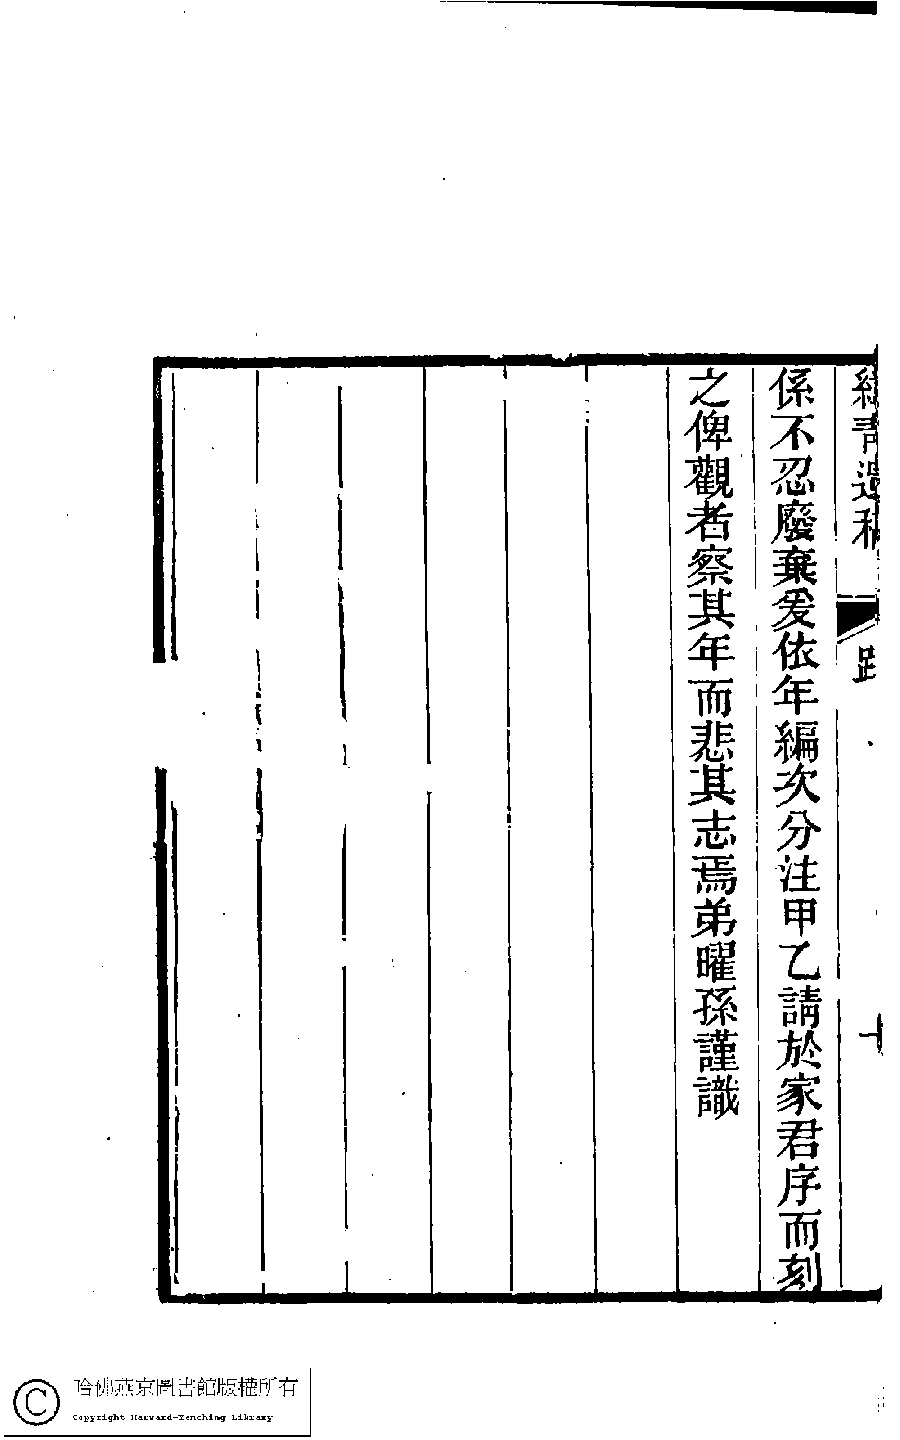 綠青遺稿 跋 十
係不忍廢棄爰依年編次分注甲乙請於家君序而刻
之俾觀者察其年而悲其志焉弟曜孫謹識
哈佛燕京圖書館版權所有
Copyright Harvard-Yenching Library